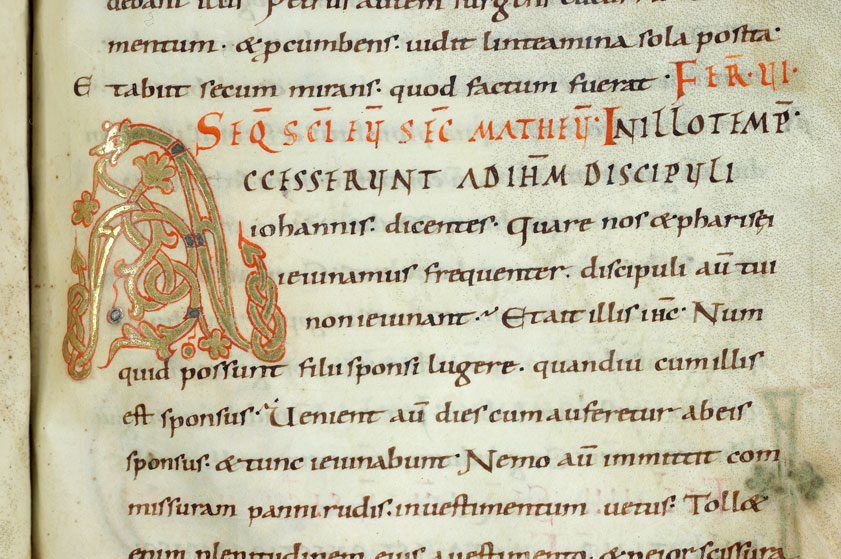 debant illis Petrus autem surgens
mentum · & p̱cumbens · uidit linteamina sola posita ·
Et abiit secum mirans · quod factum fuerat · FER̄ · VI ·
SEQ̄ SC̄I EṼ SEC̄ MATHEṼ · IN ILLO TEMP̄ ·
ACCESSERUNT AD IHM̄ DISCIPULI
iohannis · dicentes · Quare nos & pharisęi
ieiunamus frequenter · discipuli aū tui
non ieiunant · Et ait illis ihc̄ · Num
quid possunt filii sponsi lugere · quandiu cum illis
est sponsus · Uenient aū dies cum auferetur ab eis
sponsus · & tunc ieiunabunt · Nemo aū immittit com
missuram panni rudis · in uestimentum uetus · Toll&
enim plenitudinem eius a uestimento · & peior scissura